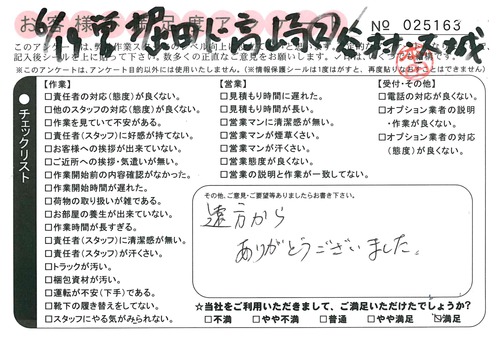 お客様満足度ア
No 025163
このアンケートは、
記入後シールを上に貼って下さい。数多くの正直なご意見をお願いします。
※このアンケートは、アンケート目的以外には使用いたしません。(※情報保護シールは1度はがすと、再度貼りなおすことはできません)
チェックリスト
【作業】
□責任者の対応(態度)が良くない。
□他のスタッフの対応(態度)が良くない。
□作業を見ていて不安がある。
□責任者(スタッフ)に好感が持てない。
□お客様への挨拶が出来ていない。
□ご近所への挨拶・気遣いが無い。
□作業開始前の内容確認がなかった。
□作業開始時間が遅れた。
□荷物の取り扱いが雑である。
□お部屋の養生が出来ていない。
□作業時間が長すぎる。
□責任者(スタッフ)に清潔感が無い。
□責任者(スタッフ)が汗くさい。
□トラックが汚い。
□梱包資材が汚い。
□運転が不安(下手)である。
□靴下の履き替えをしてない。
□スタッフにやる気がみられない。
【営業】
□見積もり時間に遅れた。
□見積もり時間が長い。
□営業マンに清潔感が無い。
□営業マンが煙草くさい。
□営業マンが汗くさい。
□営業態度が良くない。
□営業の説明と作業が一致してない。
【受付・その他】
□電話の対応が良くない。
□オプション業者の説明・作業が良くない。
□オプション業者の対応(態度)が良くない。
その他、ご意見・ご要望等ありましたらお書き下さい。
遠方から
ありがとうございました。
☆当社をご利用いただきまして、ご満足いただけたでしょうか?
□不満 □やや不満 □普通 □やや満足 ☑満足